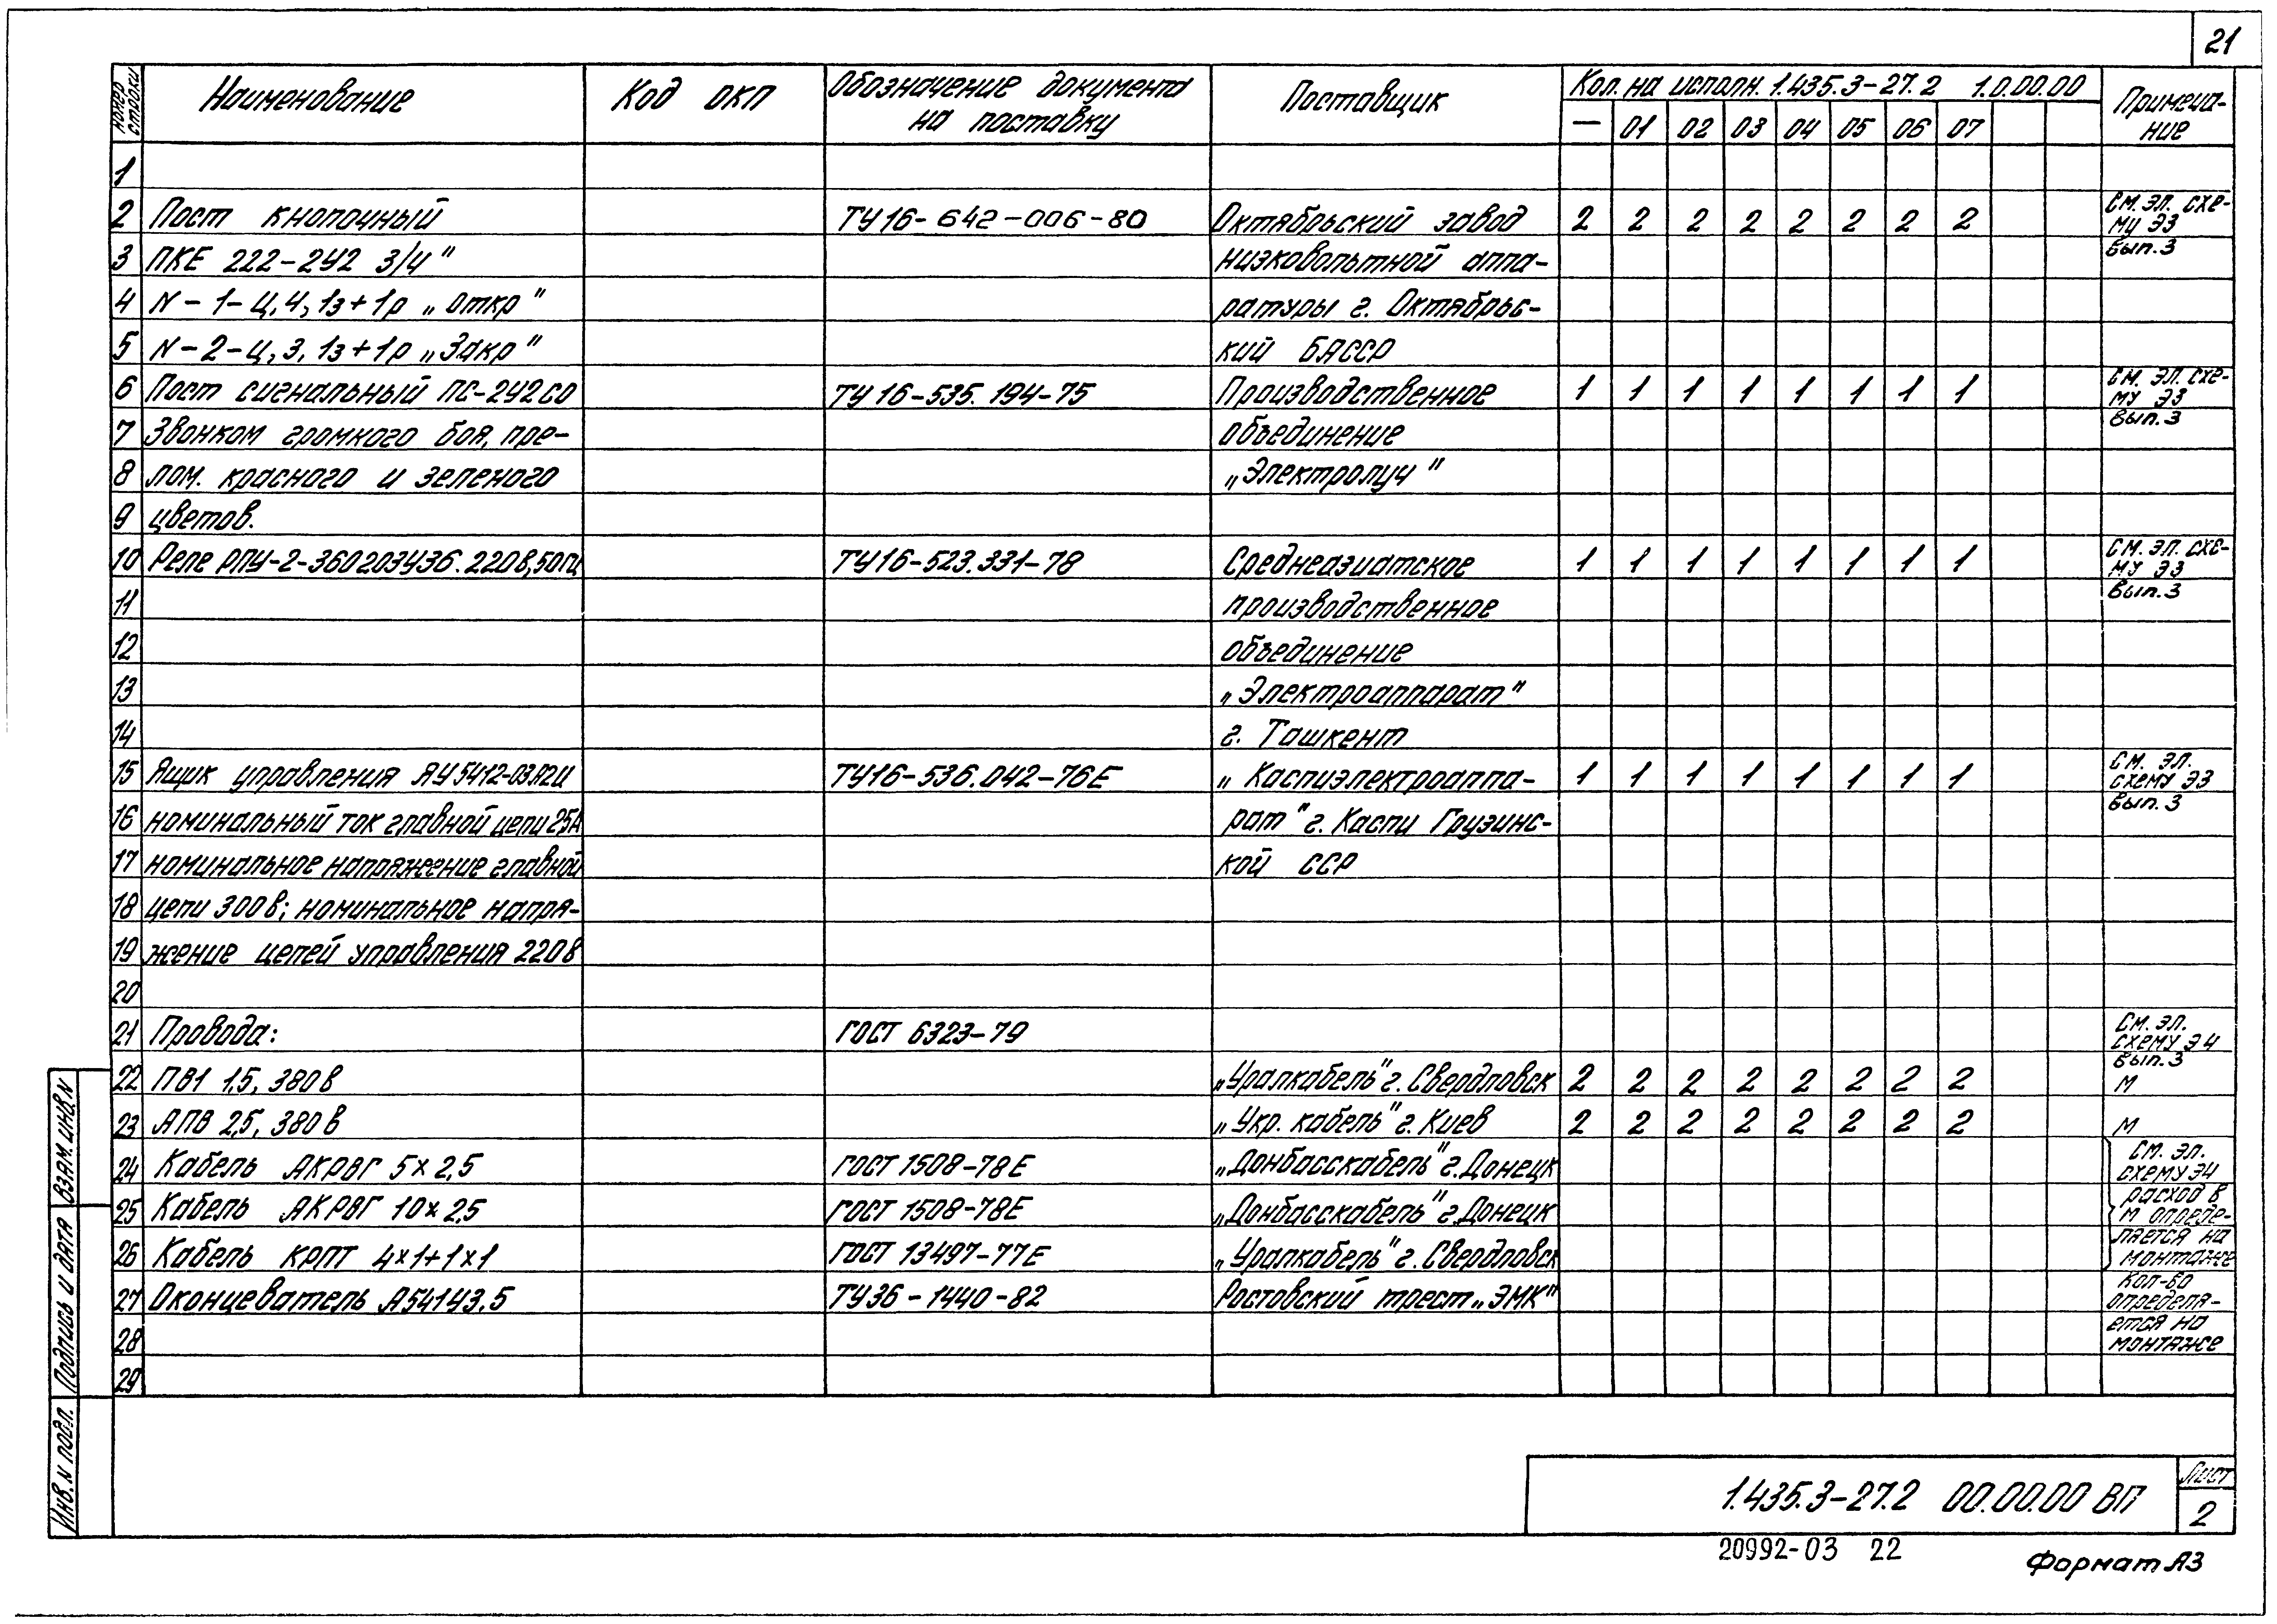 21
номер строки
Наименование
Код ОКП
Обозначение документа на поставку
Поставщик
Кол. на исполн. 1.435.3-27.2 1.0.00.00
— 01 02 03 04 05 06 07
Примечание
1
2 Пост кнопочный ТУ16-642-006-80 Октябрьский завод 2 2 2 2 2 2 2 2 См. эл. схему Э3
3 ПКЕ 222-2У2 3/4" низковольтной аппа- вып.3
4 N-1-Ц,4,1з+1р „Откр" ратуры г. Октябрьс-
5 N-2-Ц,3,1з+1р „Закр" кий БАССР
6 Пост сигнальный ПС-2У2 со ТУ16-535.194-75 Производственное 1 1 1 1 1 1 1 1 См. эл. схему Э3
7 звонком громкого боя, пре- объединение вып.3
8 лом. красного и зеленого „Электролуч"
9 цветов.
10 Реле РПУ-2-360203У3б. 220в, 50гц ТУ16-523.331-78 Среднеазиатское 1 1 1 1 1 1 1 1 См. эл. схему Э3
11 производственное вып.3
12 объединение
13 „Электроаппарат"
14 г. Ташкент
15 Ящик управления ЯУ5412-03А2И ТУ16-536.042-76Е „Каспиэлектроаппа- 1 1 1 1 1 1 1 1 См. эл. схему Э3
16 номинальный ток главной цепи 25А рат" г. Каспи Грузинс- вып.3
17 номинальное напряжение главной кой ССР
18 цепи 300в; номинальное напря-
19 жение цепей управления 220в
20
21 Провода: ГОСТ 6323-79 См. эл. схему Э4
22 ПВ1 1,5, 380в „Уралкабель" г. Свердловск 2 2 2 2 2 2 2 2 вып.3 м
23 АПВ 2,5, 380в „Укр. кабель" г. Киев 2 2 2 2 2 2 2 2 м
24 Кабель АКРВГ 5х2,5 ГОСТ 1508-78Е „Донбасскабель" г. Донецк См. эл. схему Э4
25 Кабель АКРВГ 10х2,5 ГОСТ 1508-78Е „Донбасскабель" г. Донецк расход в м опреде-
26 Кабель КРПТ 4х1+1х1 ГОСТ 13497-77Е „Уралкабель" г. Свердловск ляется на монтаже
27 Оконцеватель А54143.5 ТУ36-1440-82 Ростовский трест „ЭМК" Кол-во определя-
28 ется на монтаже
29
Взам. инв. N
Подпись и дата
Инв. N подл.
1.435.3-27.2 00.00.00 ВП
Лист
2
20992-03 22
Формат А3